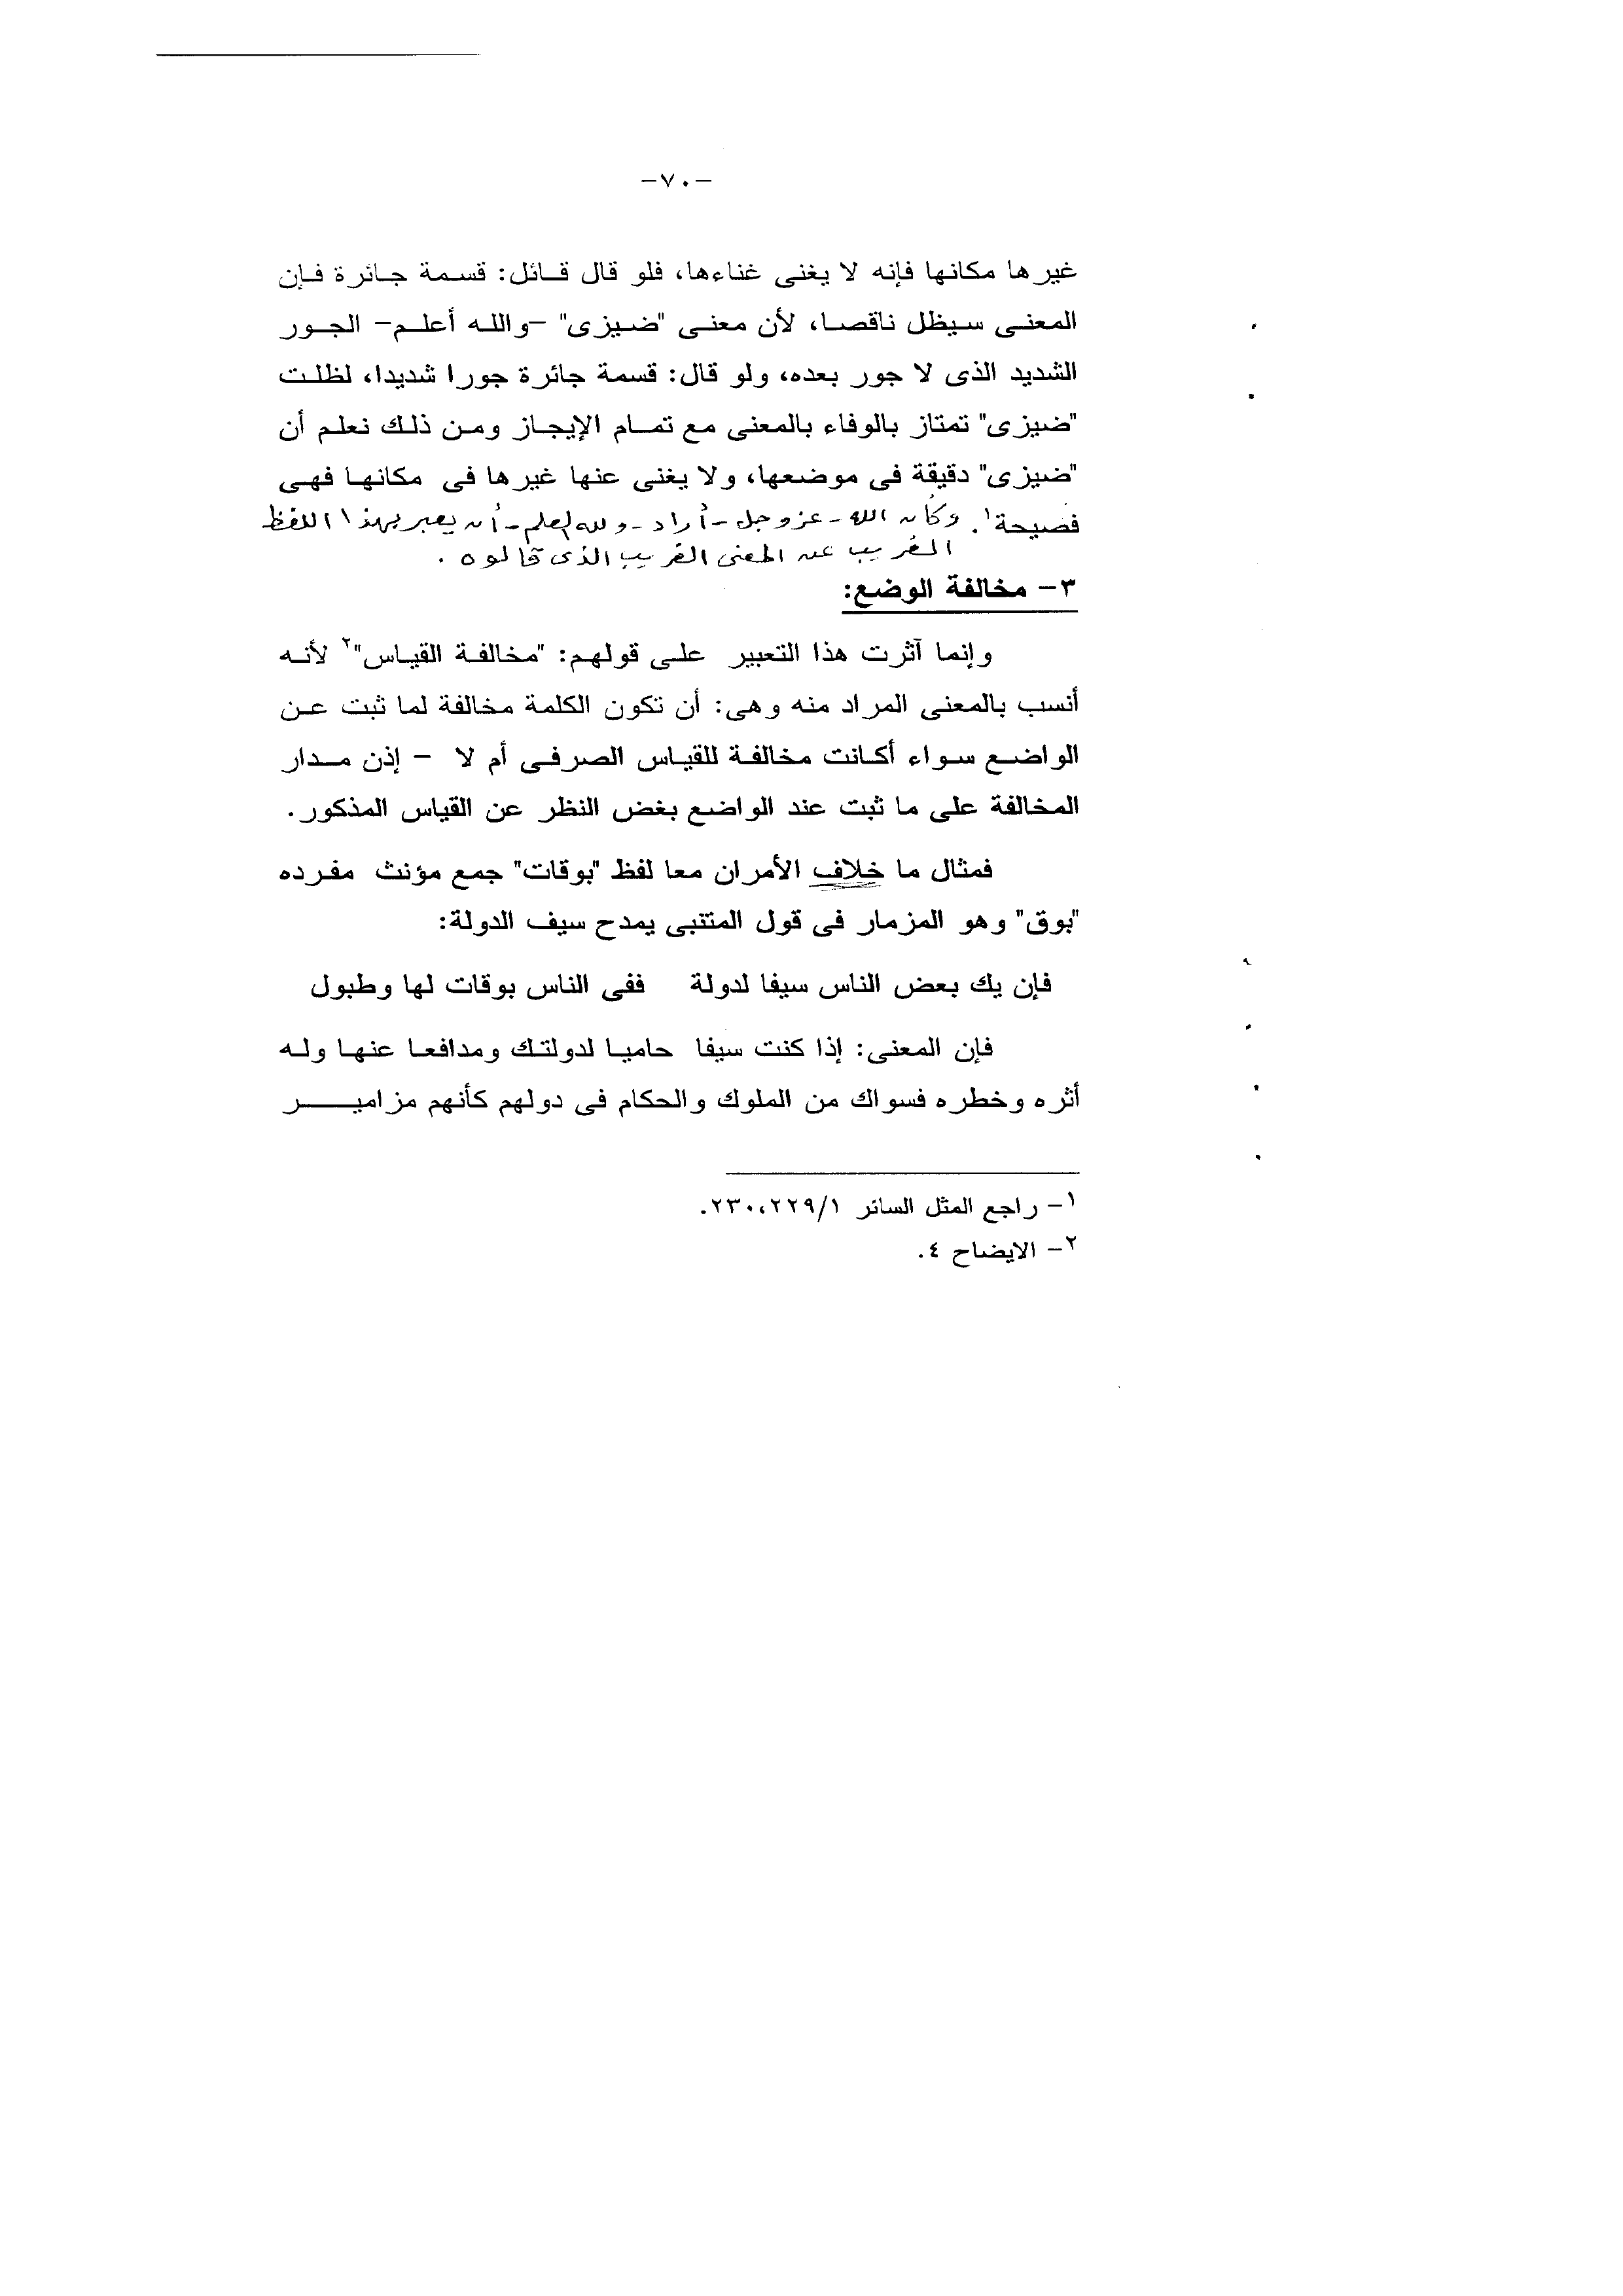 -٧٠-
غيرها مكانها فإنه لا يغنى غناءها، فلو قال قائل: قسمة جائرة فإن
المعنى سيظل ناقصا، لأن معنى "ضيزى" -والله أعلم- الجور
الشديد الذى لا جور بعده، ولو قال: قسمة جائرة جورا شديدا، لظلت
"ضيزى" تمتاز بالوفاء بالمعنى مع تمام الإيجاز ومن ذلك نعلم أن
"ضيزى" دقيقة فى موضعها، ولا يغنى عنها غيرها فى مكانها فهى
فصيحة١. وكأن الله - عز وجل - أراد - والله أعلم - أن يعبر بهذا اللفظ
الغريب عن المعنى الغريب الذى قالوه .
٣- مخالفة الوضع:
وإنما آثرت هذا التعبير على قولهم: "مخالفة القياس"٢ لأنه
أنسب بالمعنى المراد منه وهى: أن تكون الكلمة مخالفة لما ثبت عن
الواضع سواء أكانت مخالفة للقياس الصرفى أم لا - إذن مدار
المخالفة على ما ثبت عند الواضع بغض النظر عن القياس المذكور.
فمثال ما خلاف الأمران معا لفظ "بوقات" جمع مؤنث مفرده
"بوق" وهو المزمار فى قول المتنبى يمدح سيف الدولة:
فإن يك بعض الناس سيفا لدولة ففى الناس بوقات لها وطبول
فإن المعنى: إذا كنت سيفا حاميا لدولتك ومدافعا عنها وله
أثره وخطره فسواك من الملوك والحكام فى دولهم كأنهم مزامير
١- راجع المثل السائر ٢٣٠،٢٢٩/١.
٢- الايضاح ٤.